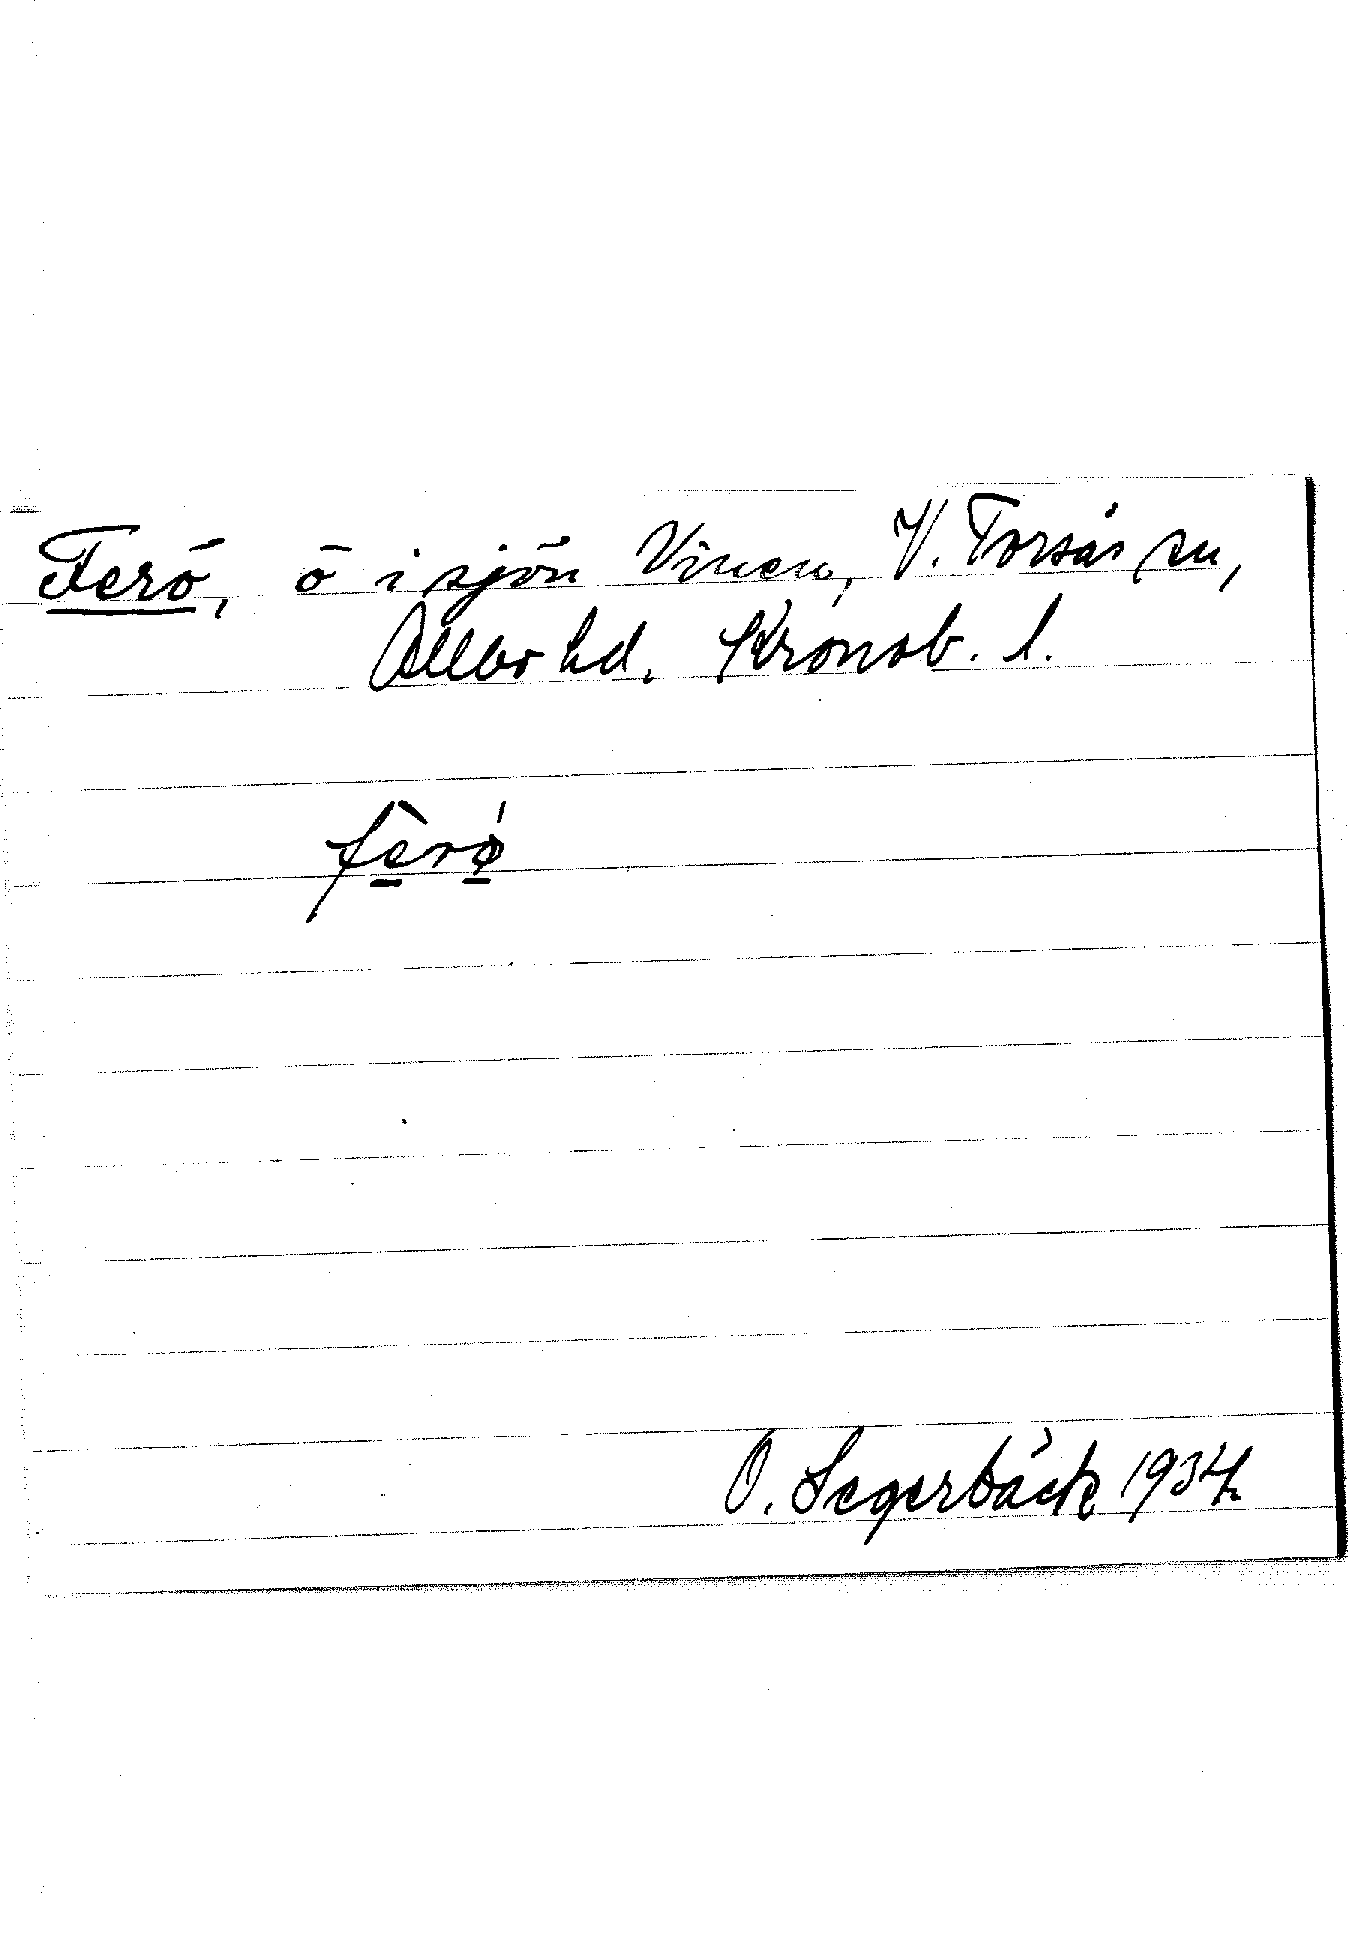 Ferö, ö i sjön Vinen, V. Torsås sn,
Allbo hd. Kronob. l.
fèrǿ
O. Segerbäck 1934